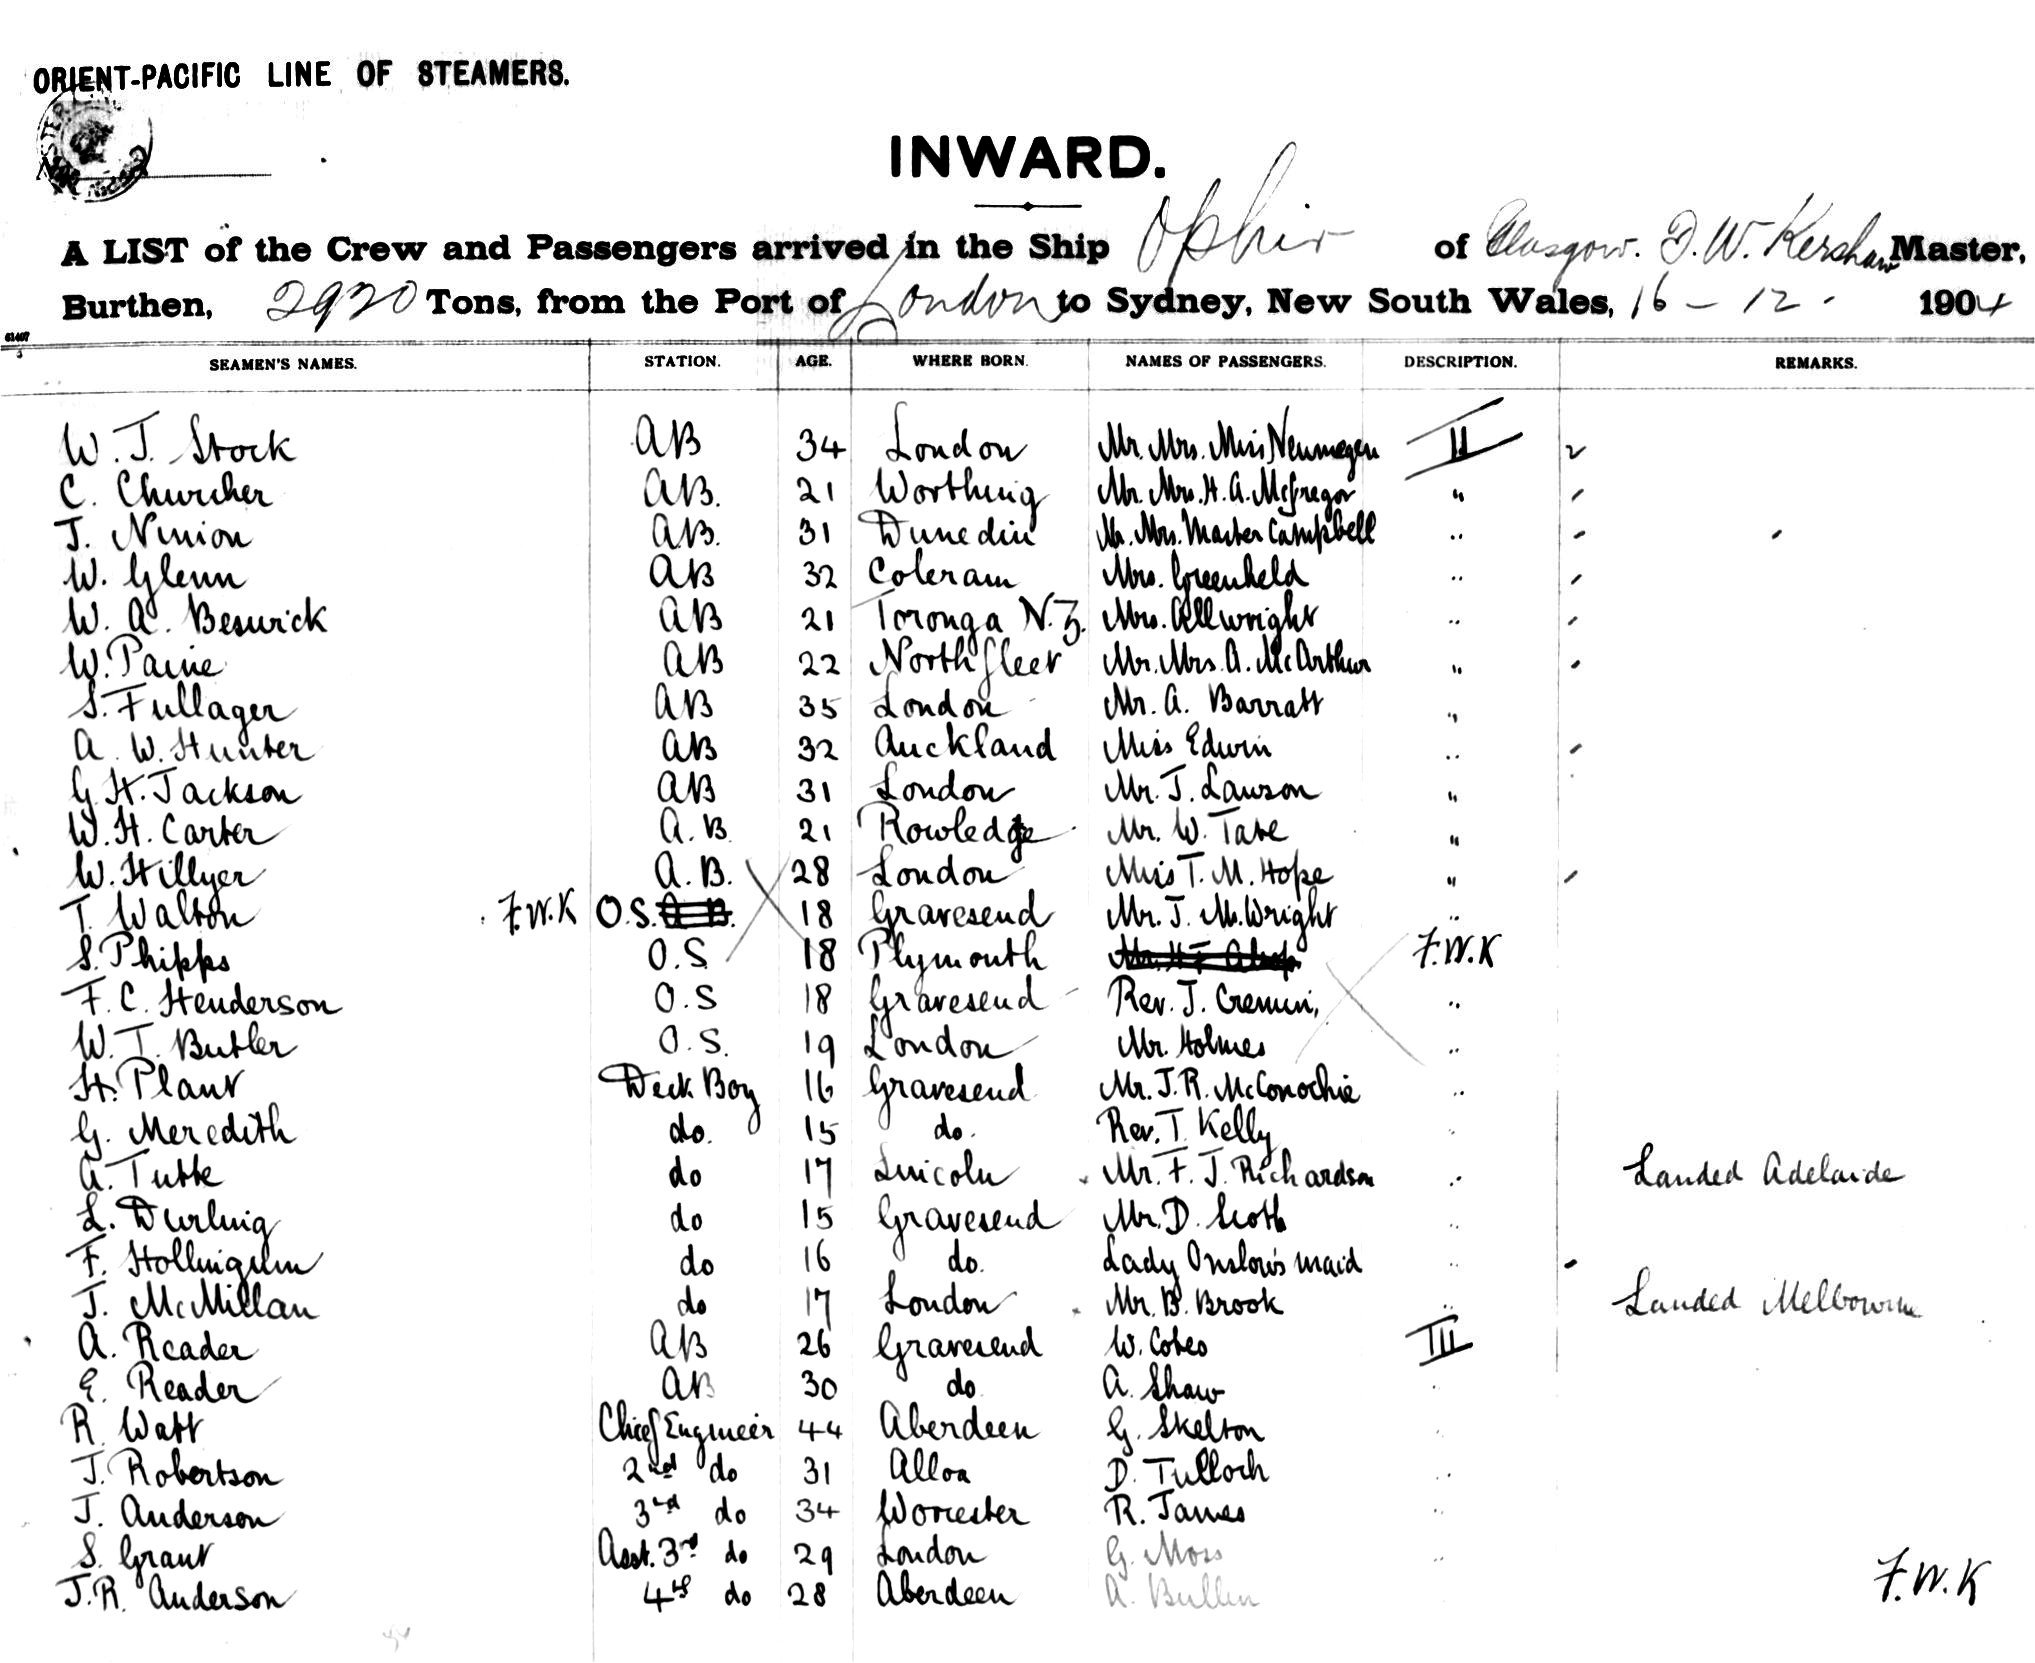 ORIENT-PACIFIC LINE OF STEAMERS.
INWARD.
A LIST of the Crew and Passengers arrived in the Ship Ophir of Glasgow. F.W. Kershaw Master,
Burthen, 2920 Tons, from the Port of London to Sydney, New South Wales, 16 - 12 - 1904
SEAMEN'S NAMES. STATION. AGE. WHERE BORN. NAMES OF PASSENGERS. DESCRIPTION. REMARKS.
W. J. Stock AB 34 London Mr. Mrs. Miss Neumegen II
C. Churcher AB. 21 Worthing Mr. Mrs. H. A. McGregor "
J. Ninion AB. 31 Dunedin Mr. Mrs. Master Campbell "
W. Glenn AB 32 Coleram Mrs. Greenheld "
W. A. Beswick AB 21 Toronga N.Z. Mrs. Allwright "
W. Paine AB 22 Northfleet Mr. Mrs. A. McArthur "
S. Fullager AB 35 London Mr. A. Barratt "
A. W. Hunter AB 32 Auckland Miss Edwin "
G. H. Jackson AB 31 London Mr. J. Lawson "
W. H. Carter A. B. 21 Rowledge Mr. W. Tate "
W. Hillyer A. B. 28 London Miss T. M. Hope "
T. Walton F.W.K O.S. A B. 18 Gravesend Mr. J. M. Wright "
S. Phipps O.S. 18 Plymouth Mr. H F Alsop F.W.K
F. C. Henderson O.S 18 Gravesend Rev. J. Cremin, "
W. T. Butler O.S. 19 London Mr. Holmes "
H. Plant Deck Boy 16 Gravesend Mr. J. R. McConochie "
G. Meredith do. 15 do. Rev. T. Kelly "
A. Tutte do 17 Lincoln Mr. F. J. Richardson " Landed Adelaide
L. Durling do 15 Gravesend Mr. D. Scott "
F. Hollingum do 16 do. Lady Onslow's maid "
J. McMillan do 17 London Mr. B. Brook " Landed Melbourne
A. Reader AB 26 Gravesend W. Cotes III
E. Reader AB 30 do A. Shaw "
R. Watt Chief Engineer 44 Aberdeen G. Skelton "
J. Robertson 2nd do 31 Alloa D. Tulloch "
J. Anderson 3rd do 34 Worcester R. James "
S. Grant Asst. 3rd do 29 London G. Moss "
J. R. Anderson 4th do 28 Aberdeen A. Bullen F.W.K